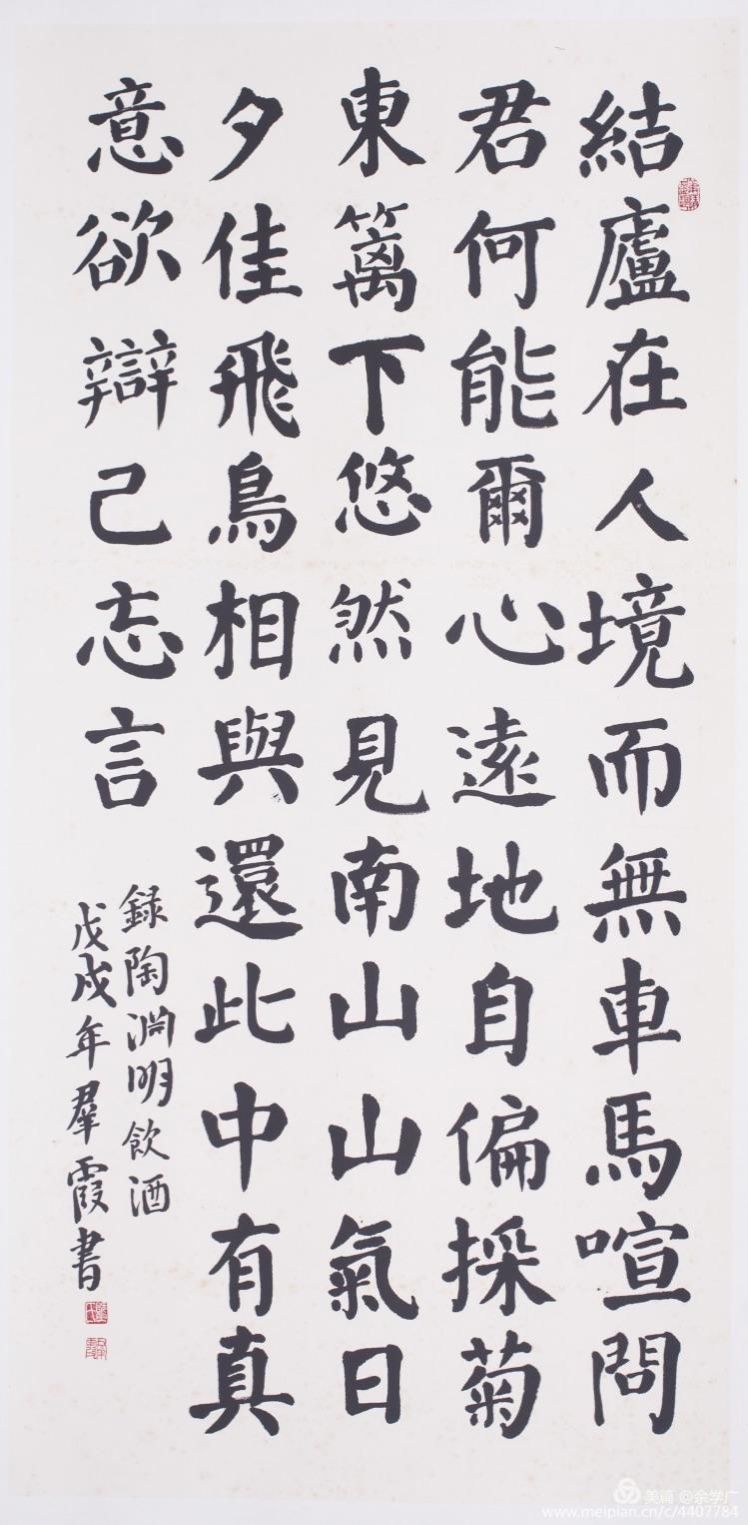 結廬在人境而無車馬喧問
君何能爾心遠地自偏採菊
東篱下悠然見南山山氣日
夕佳飛鳥相與還此中有真
意欲辯己志言
録陶淵明飲酒
戊戌年羣霞書
美篇 @余学广
www.meipian.cn/c/4407784